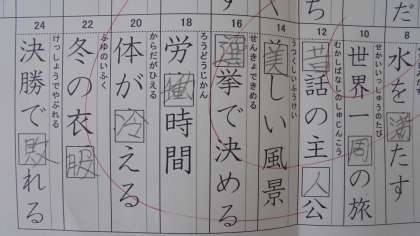 だ
ち
く
8
水を満たす
10
せかいいっしゅうのたび
世界一周の旅
12
むかしばなしのしゅじんこう
昔話の主人公
14
うつくしいふうけい
美しい風景
16
せんきょできめる
選挙で決める
18
ろうどうじかん
労働時間
20
からだがひえる
体が冷える
22
ふゆのいふく
冬の衣服
24
けっしょうでやぶれる
決勝で敗れる